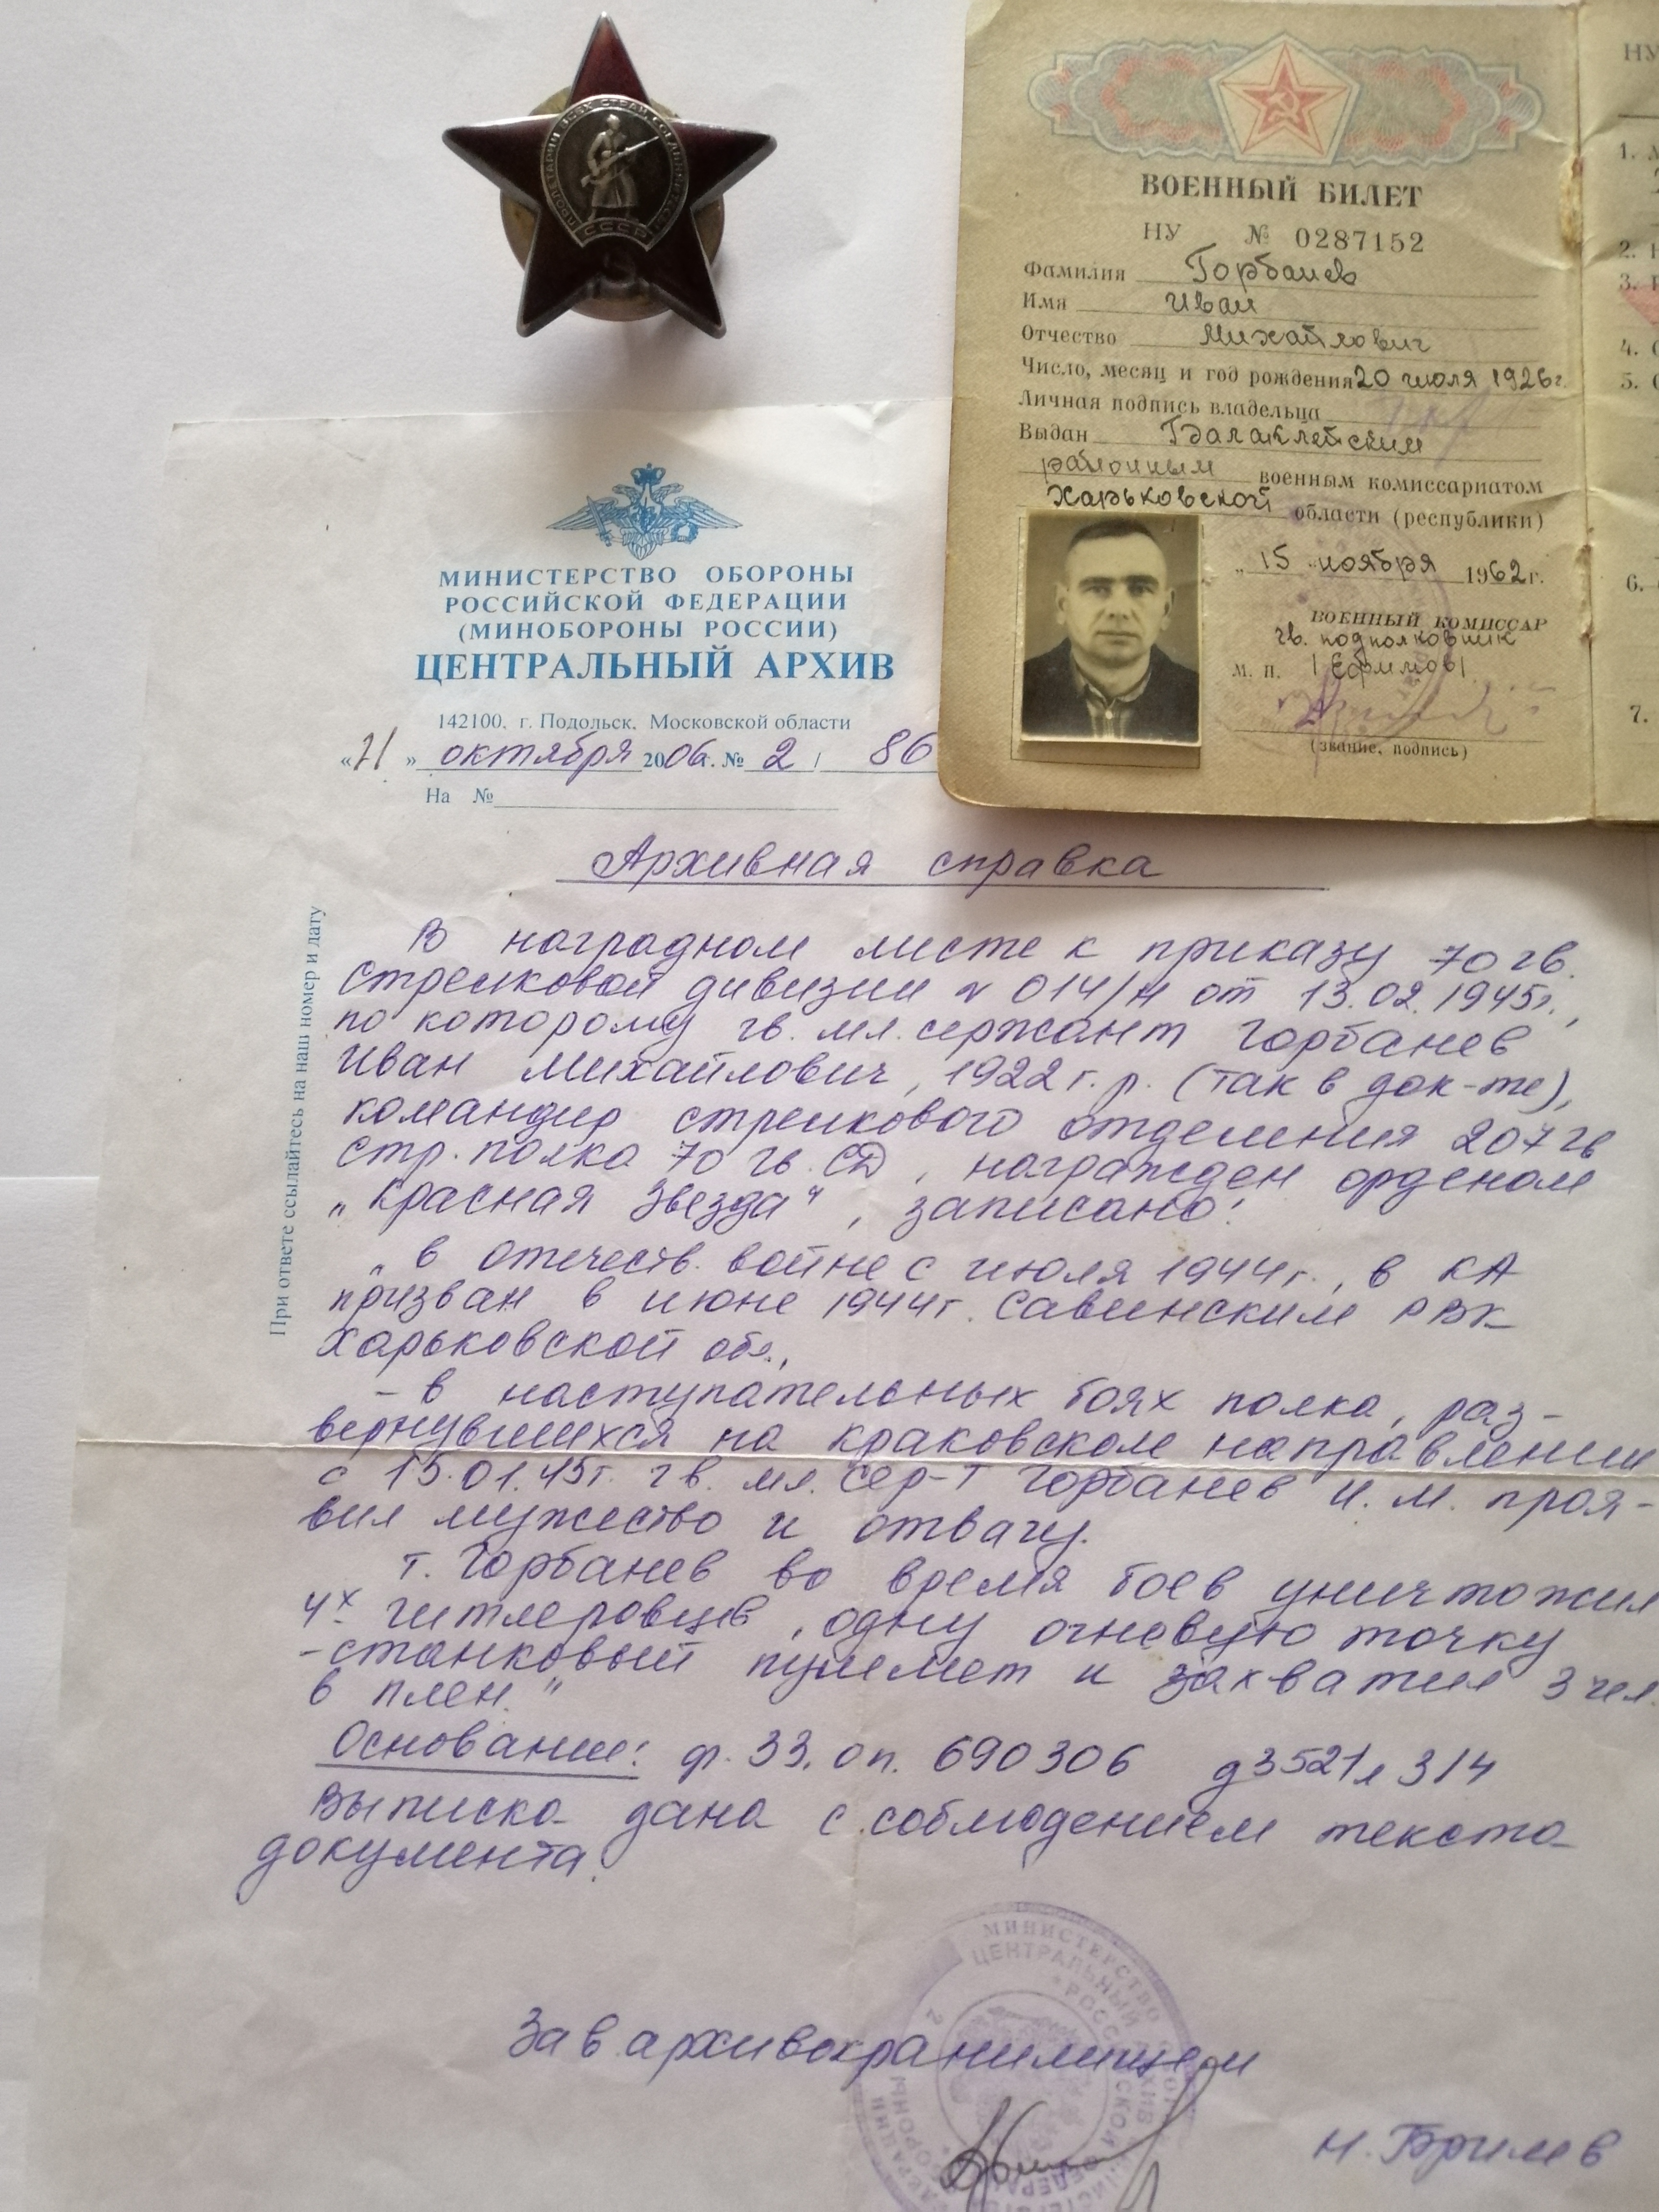 ПРОЛЕТАРИИ ВСЕХ СТРАН СОЕДИНЯЙТЕСЬ
СССР
ВОЕННЫЙ БИЛЕТ
НУ № 0287152
Фамилия Горбанев
Имя Иван
Отчество Михайлович
Число, месяц и год рождения 20 июля 1926 г.
Личная подпись владельца
Выдан Балаклейским
районным военным комиссариатом
Харьковской области (республики)
„15 " ноября 1962 г.
ВОЕННЫЙ КОМИССАР
гв. подполковник
М. П. /Ефимов/
(звание, подпись)
НУ
1.
2.
3.
4.
5.
6.
7.
МИНИСТЕРСТВО ОБОРОНЫ
РОССИЙСКОЙ ФЕДЕРАЦИИ
(МИНОБОРОНЫ РОССИИ)
ЦЕНТРАЛЬНЫЙ АРХИВ
142100, г. Подольск, Московской области
« » октября 2006 г. № 2 / 86
На №
При ответе ссылайтесь на наш номер и дату
Архивная справка
В наградном листе к приказу 70 гв.
стрелковой дивизии № 014/н от 13.02.1945г.,
по которому гв. мл. сержант Горбанев
Иван Михайлович, 1922 г. р. (так в док-те),
командир стрелкового отделения 207 гв
стр. полка 70 гв. СД, награжден орденом
„Красная Звезда", записано:
„в отечеств. войне с июля 1944г., в КА
призван в июне 1944г. Савинским РВК
Харьковской обл.,
- в наступательных боях полка, раз-
вернувшихся на краковском направлении
с 15.01.45г. гв. мл. сер-т Горбанев И. М. проя-
вил мужество и отвагу.
т. Горбанев во время боев уничтожил
4х гитлеровцев, одну огневую точку
-станковый пулемет и захватил 3 чел.
в плен."
Основание: ф. 33, оп. 690306 д 3521 л 314
Выписка дана с соблюдением текста
документа.
МИНИСТЕРСТВО
ЦЕНТРАЛЬНЫЙ АРХИВ
Зав архивохранилищем
Н. Брилев